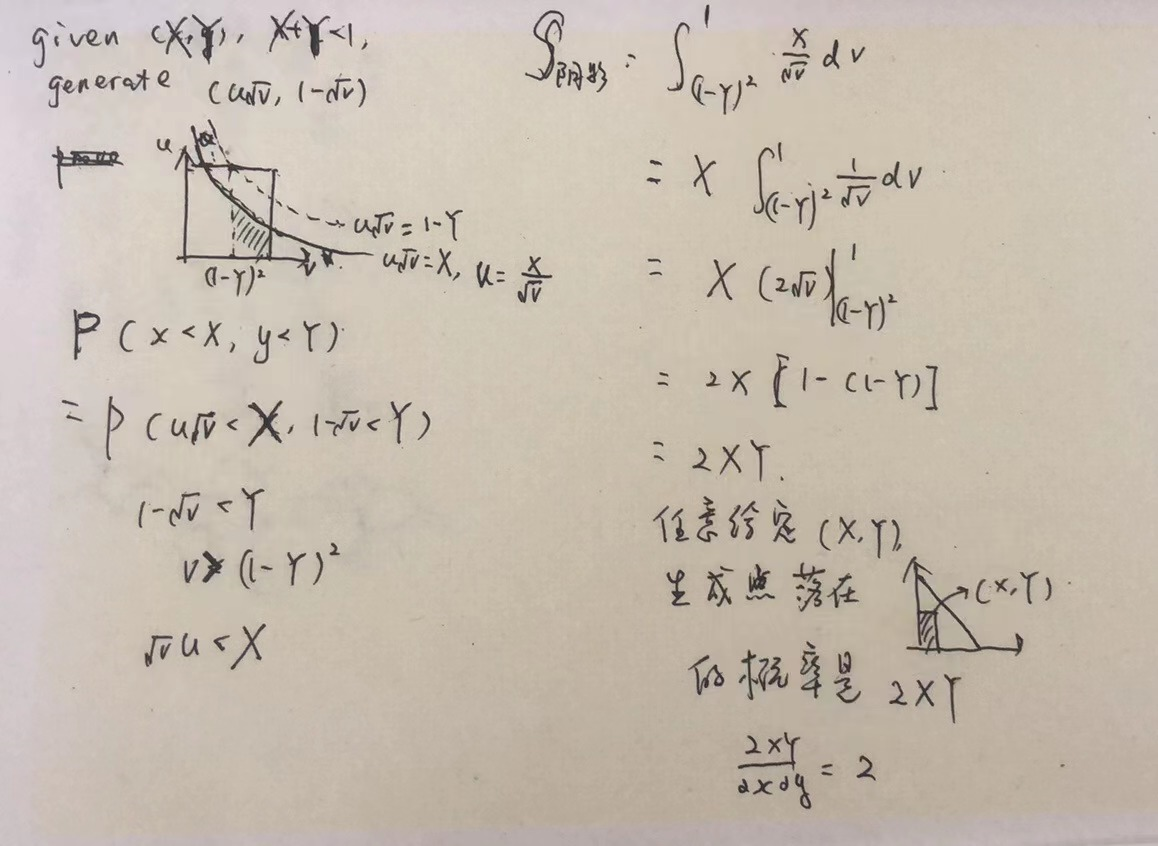 given (X,Y), X+Y<1,
generate (u√v, 1-√v)
u
u√v = 1-Y
u√v = X, u = X/√v
v
(1-Y)²
P(x<X, y<Y)
= P(u√v < X, 1-√v < Y)
1-√v < Y
v > (1-Y)²
√v u < X
S阴影 = ∫_{(1-Y)²}^{1} X/√v dv
= X ∫_{(1-Y)²}^{1} 1/√v dv
= X (2√v)|_{(1-Y)²}^{1}
= 2X [1-(1-Y)]
= 2XY.
任意给定 (X,Y),
生成点落在
(X,Y)
的概率是 2XY
2XY/∂x∂y = 2